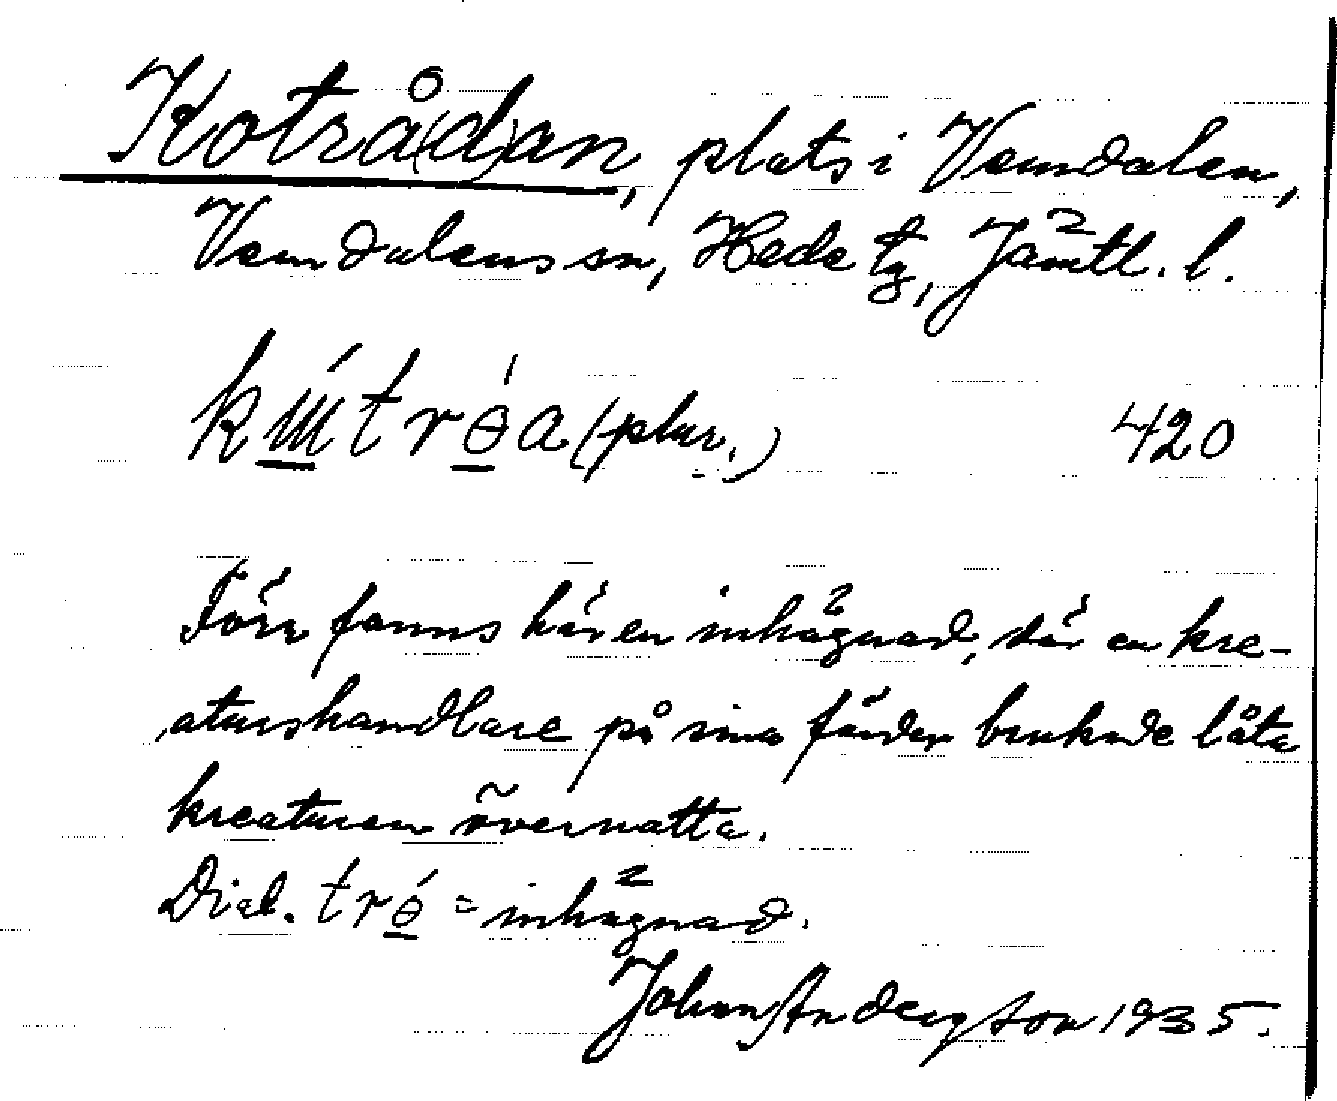 Kotrå(d)an, plats i Vemdalen,
Vemdalens sn, Hede tg, Jämtl. l.
kɯ́trɵ́a (plur.) 420
Förr fanns här en inhägnad, där en kre-
aturshandlare på sina färder brukade låta
kreaturen övernatta.
Dial. trɵ́ = inhägnad.
Johan Andersson 1935.